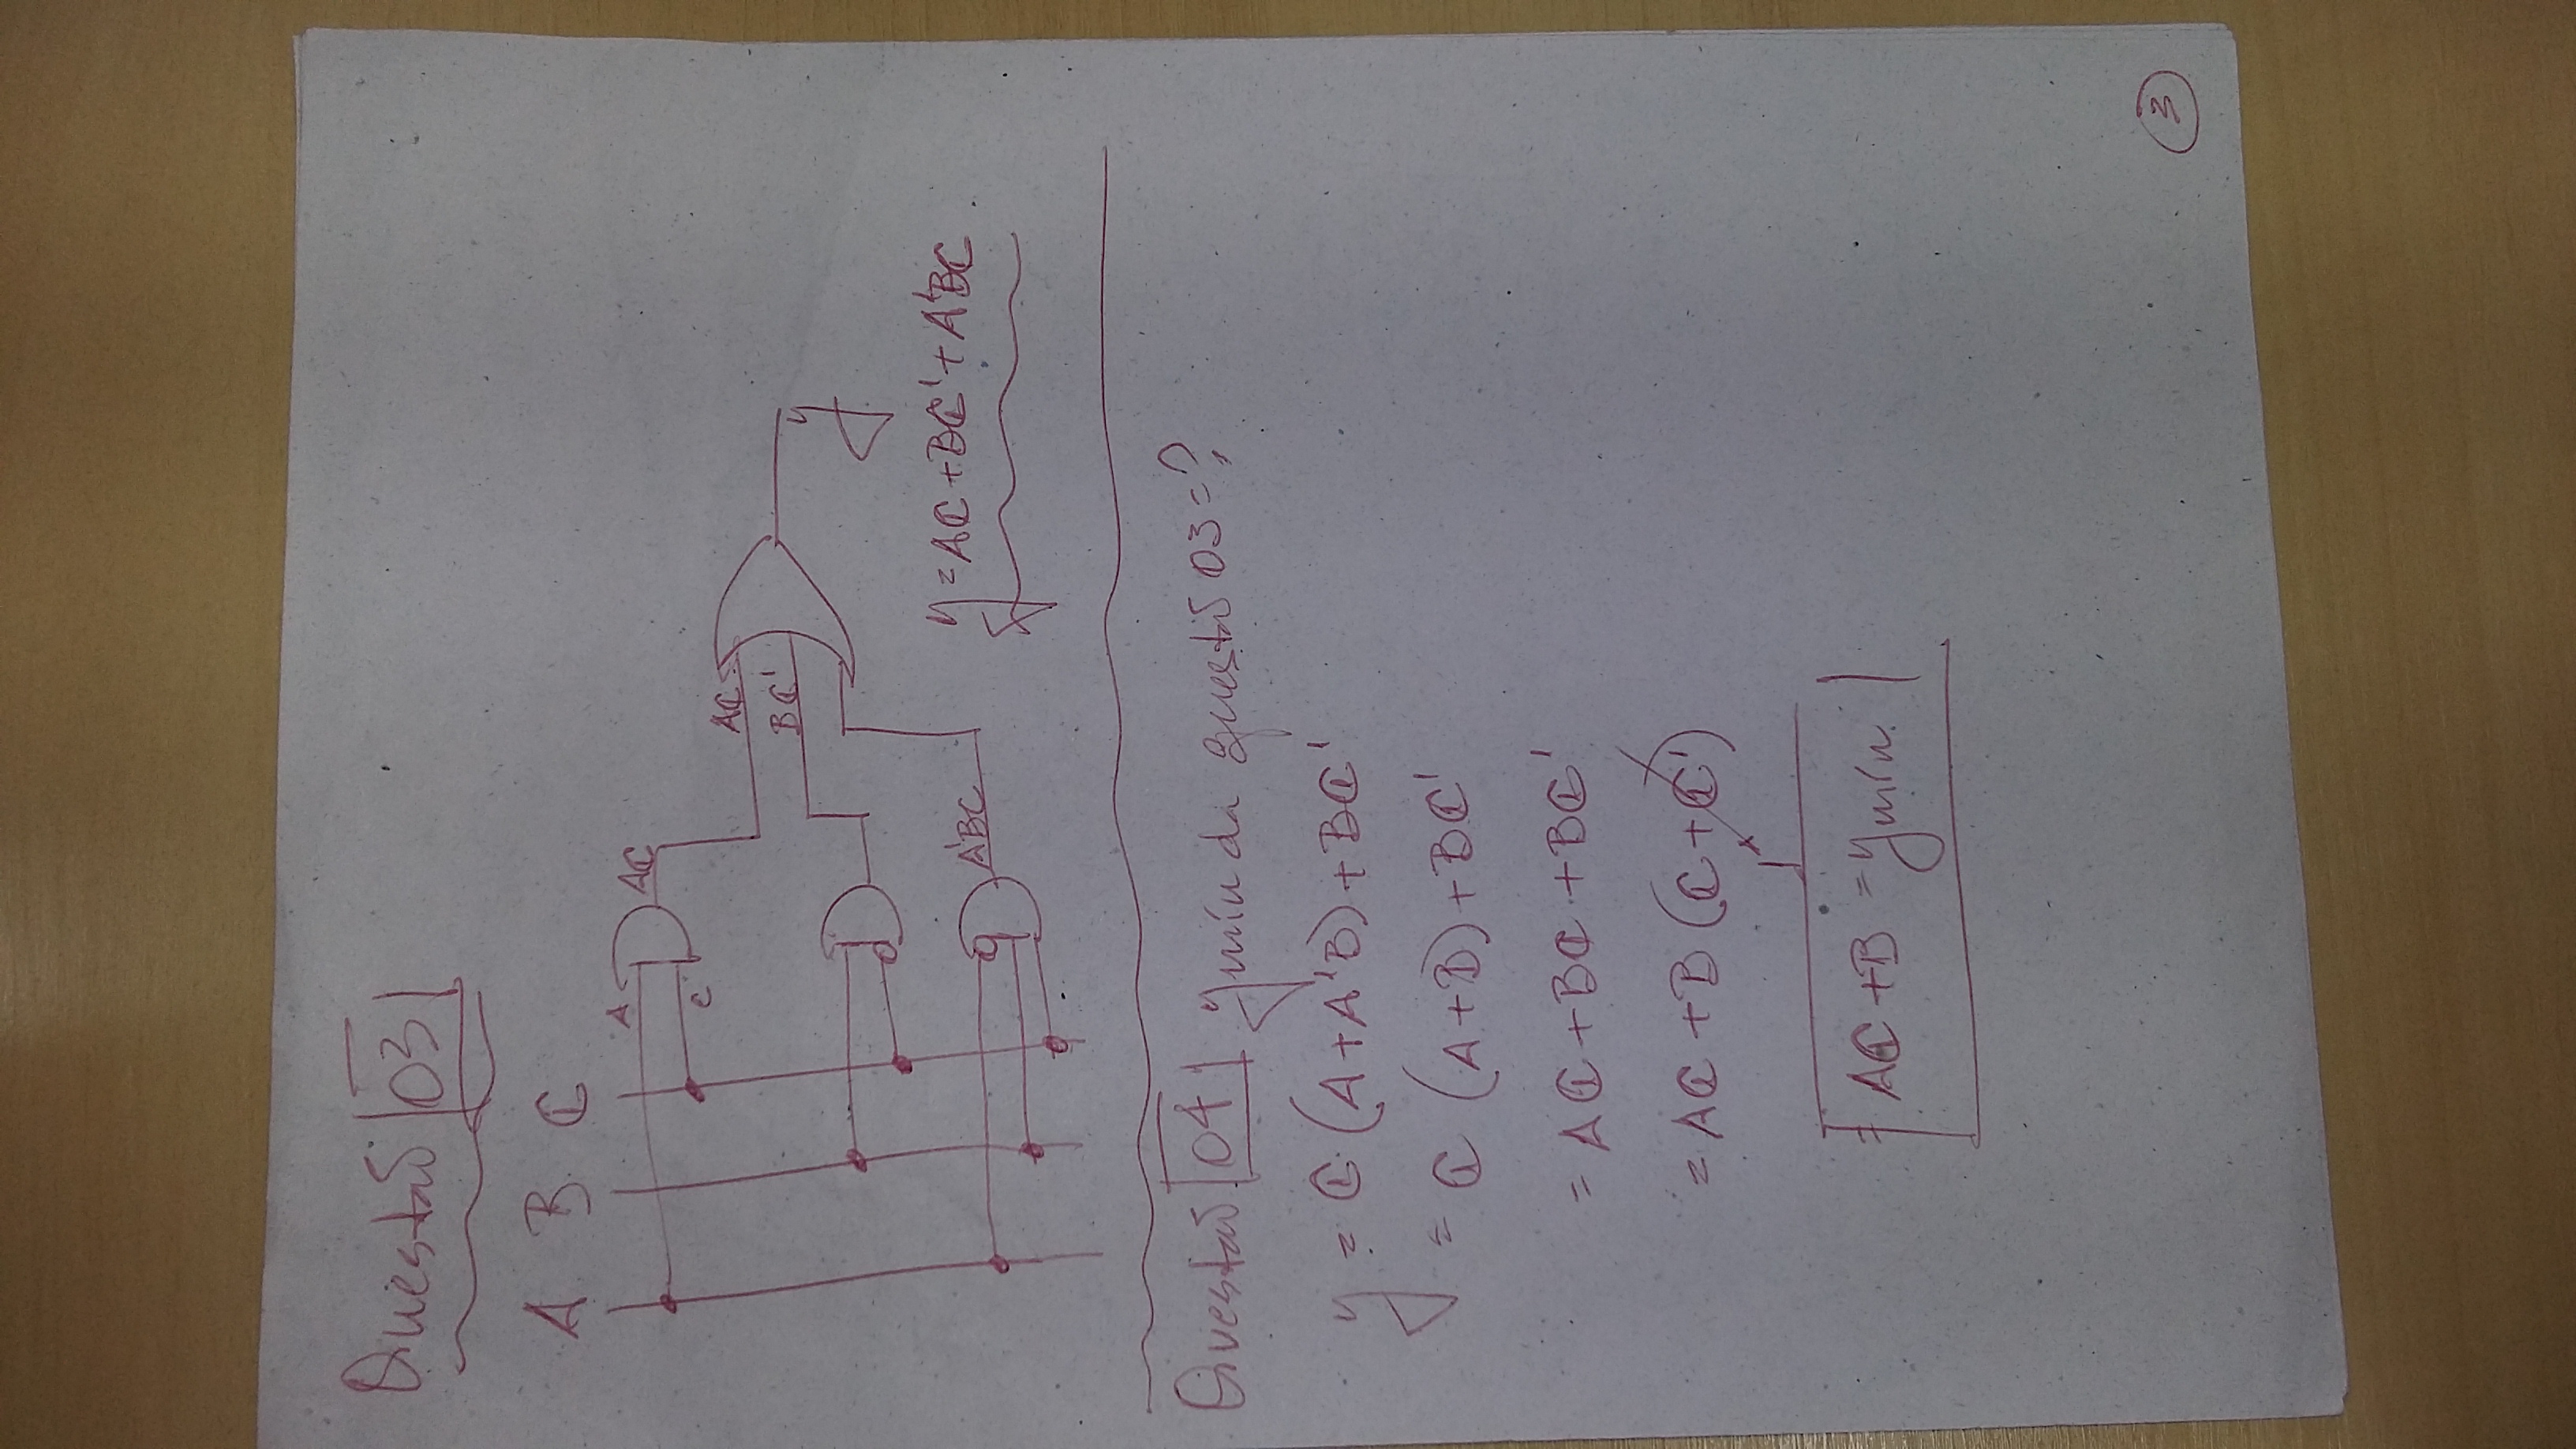 Questão 03
A B C
A
C
AC
AC
BC'
A'BC
y
y = AC + BC' + A'BC
Questão 04 ymín da questão 03 = ?
y = C (A + A'B) + BC'
= C (A + B) + BC'
= AC + BC + BC'
= AC + B (C + C')
1
= AC + B = ymín
3